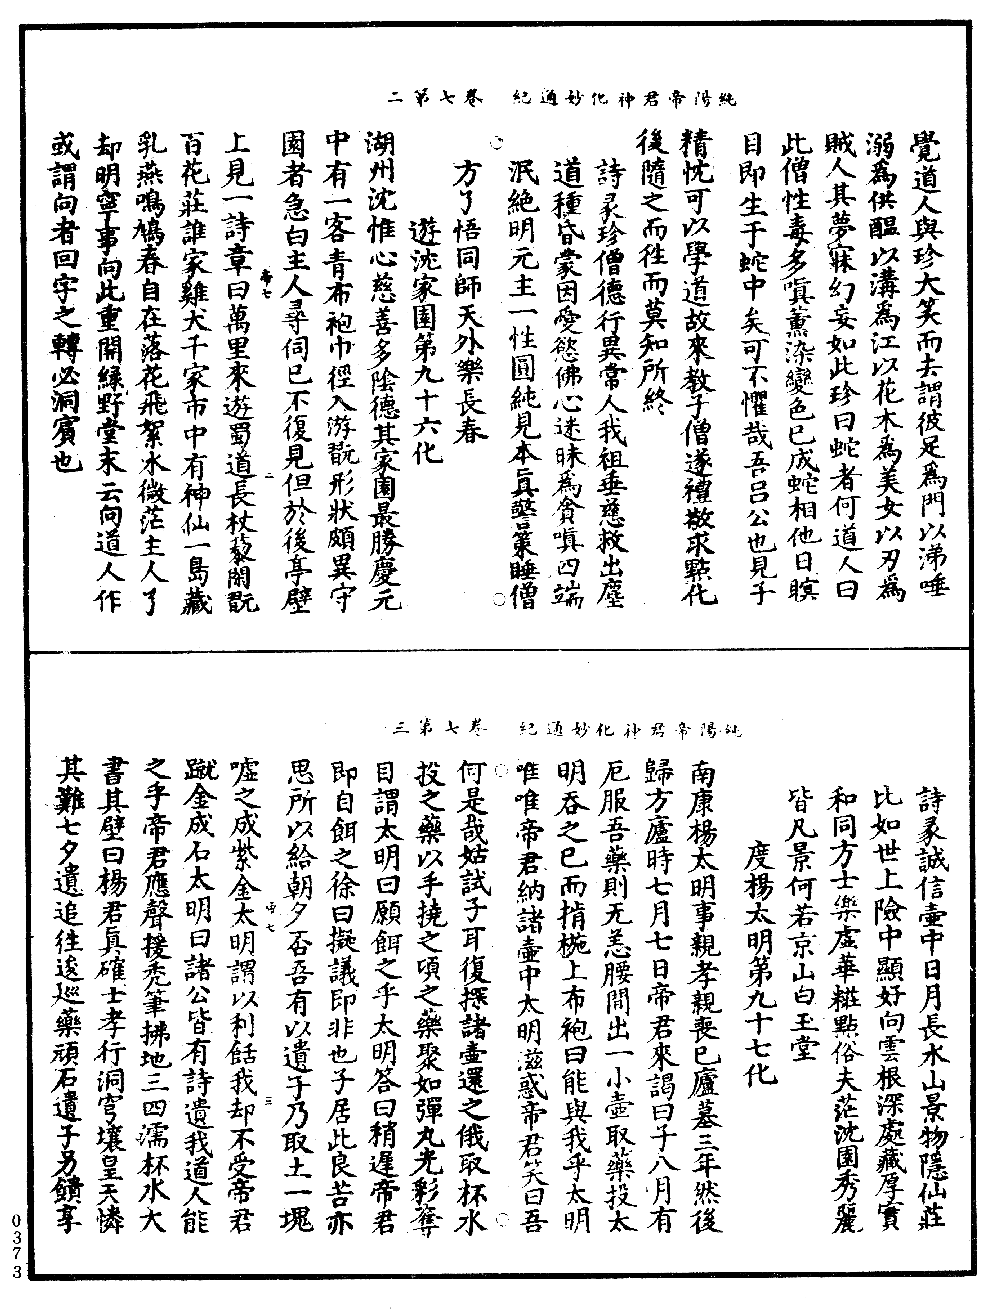 純陽帝君神化妙通紀　卷七第二
覺道人與珍大笑而去謂彼足為門以涕唾
溺為供醞以溝為江以花木為美女以刃為
賊人其夢寐幻妄如此珍曰蛇者何道人曰
此僧性毒多嗔薰染變色已成蛇相他日瞑
目即生于蛇中矣可不懼哉吾呂公也見子
精忱可以學道故來教子僧遂禮敬求點化
後隨之而徃而莫知所終
詩彖珍僧德行異常人我祖垂慈救出塵
道種昏蒙因愛慾佛心迷昧為貪嗔四端
泯絶明元主一性圓純見本真警策睡僧
方了悟同師天外樂長春
遊沈家園第九十六化
湖州沈惟心慈善多陰德其家園最勝慶元
中有一客青布袍巾徑入游翫形狀頗異守
園者急白主人尋伺已不復見但於後亭壁
上見一詩章曰萬里來遊蜀道長杖藜閑翫
百花莊誰家雞犬千家市中有神仙一島藏
乳燕鳴鳩春自在落花飛絮水微茫主人了
却明寧事向此重開綠野堂末云向道人作
或謂向者回字之轉必洞賓也
帝七
二
純陽帝君神化妙通紀　卷七第三
詩彖誠信壺中日月長水山景物隱仙莊
比如世上險中顯好向雲根深處藏厚實
和同方士樂虛華糚點俗夫茫沈園秀麗
皆凡景何若京山白玉堂
度楊太明第九十七化
南康楊太明事親孝親喪已廬墓三年然後
歸方廬時七月七日帝君來謁曰子八月有
厄服吾藥則无恙腰間出一小壺取藥投太
明吞之已而揹椀上布袍曰能與我乎太明
唯唯帝君納諸壺中太明滋惑帝君笑曰吾
何是哉姑試子耳復探諸壺還之俄取杯水
投之藥以手撓之頃之藥聚如彈丸光彩奪
目謂太明曰願餌之乎太明答曰稍遲帝君
即自餌之徐曰擬議即非也子居此良苦亦
思所以給朝夕否吾有以遺子乃取土一塊
噓之成紫金太明謂以利餂我却不受帝君
蹴金成石太明曰諸公皆有詩遺我道人能
之乎帝君應聲援禿筆拂地三四濡杯水大
書其壁曰楊君真確士孝行洞穹壤皇天憐
其難七夕遺追徃逡巡藥頑石遺子另饋享
帝七
三
0373